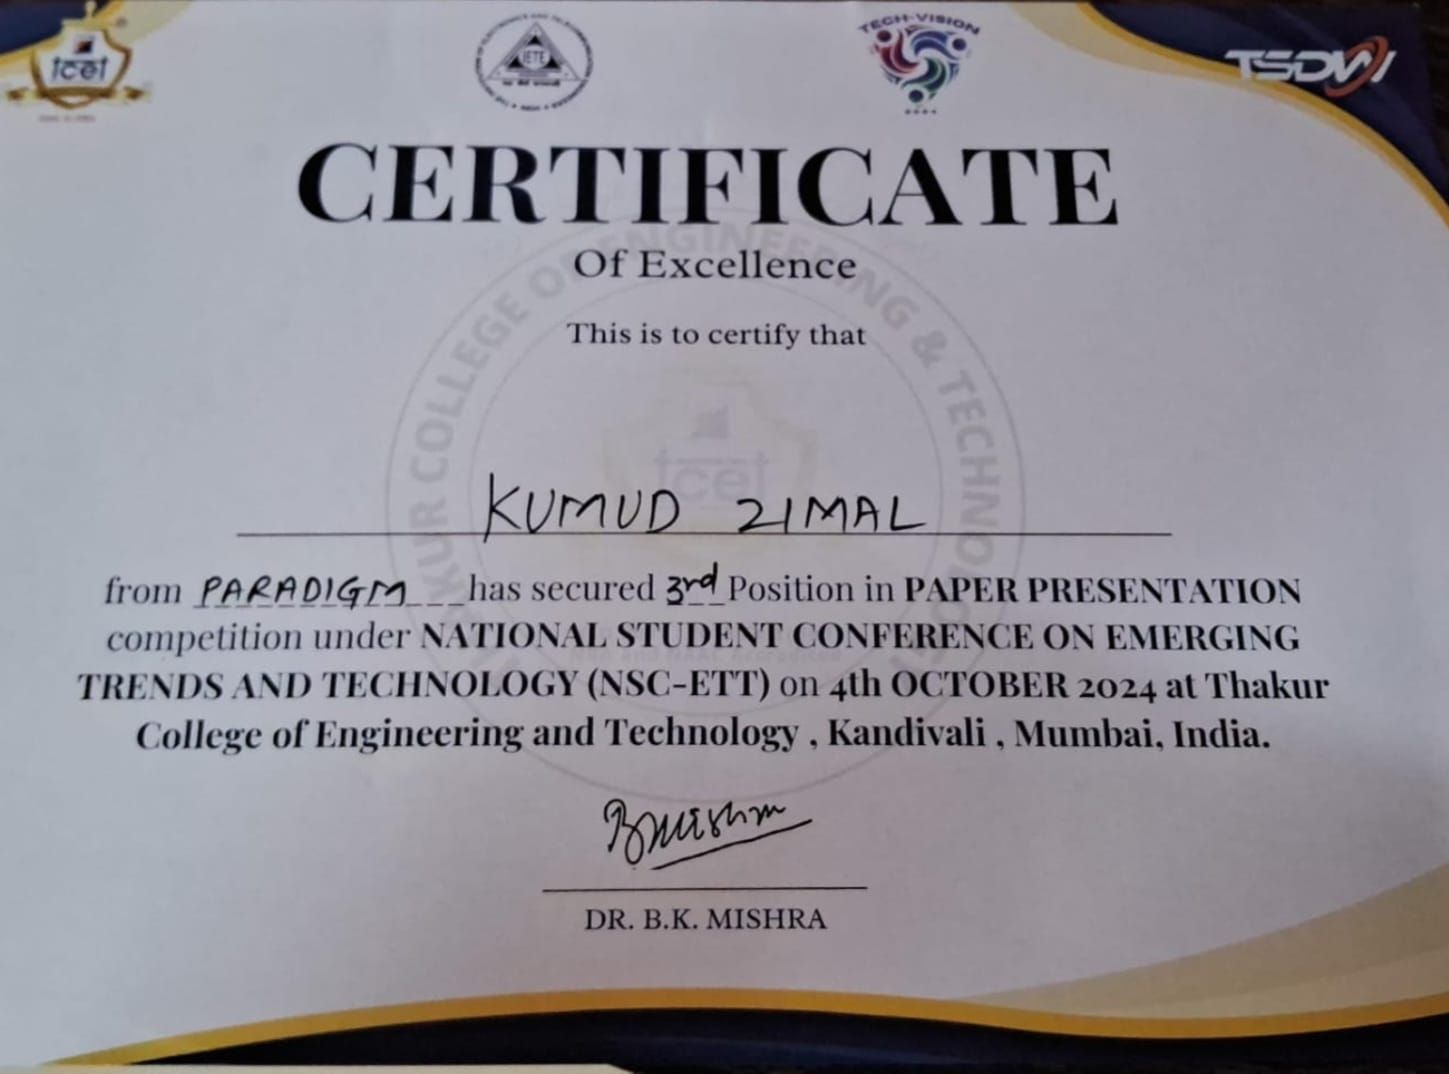 tcet
IETE
TECH-VISION
TSDW
CERTIFICATE
Of Excellence
This is to certify that
KUMUD ZIMAL
from PARADIGM has secured 3rd Position in PAPER PRESENTATION
competition under NATIONAL STUDENT CONFERENCE ON EMERGING
TRENDS AND TECHNOLOGY (NSC-ETT) on 4th OCTOBER 2024 at Thakur
College of Engineering and Technology , Kandivali , Mumbai, India.
BKMishra
DR. B.K. MISHRA
KUR COLLEGE OF ENGINEERING & TECHNOLO
tcet